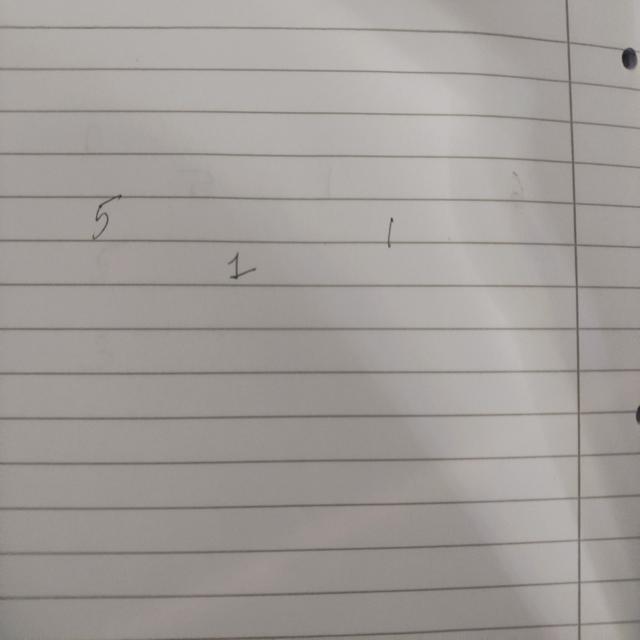 5 1
1